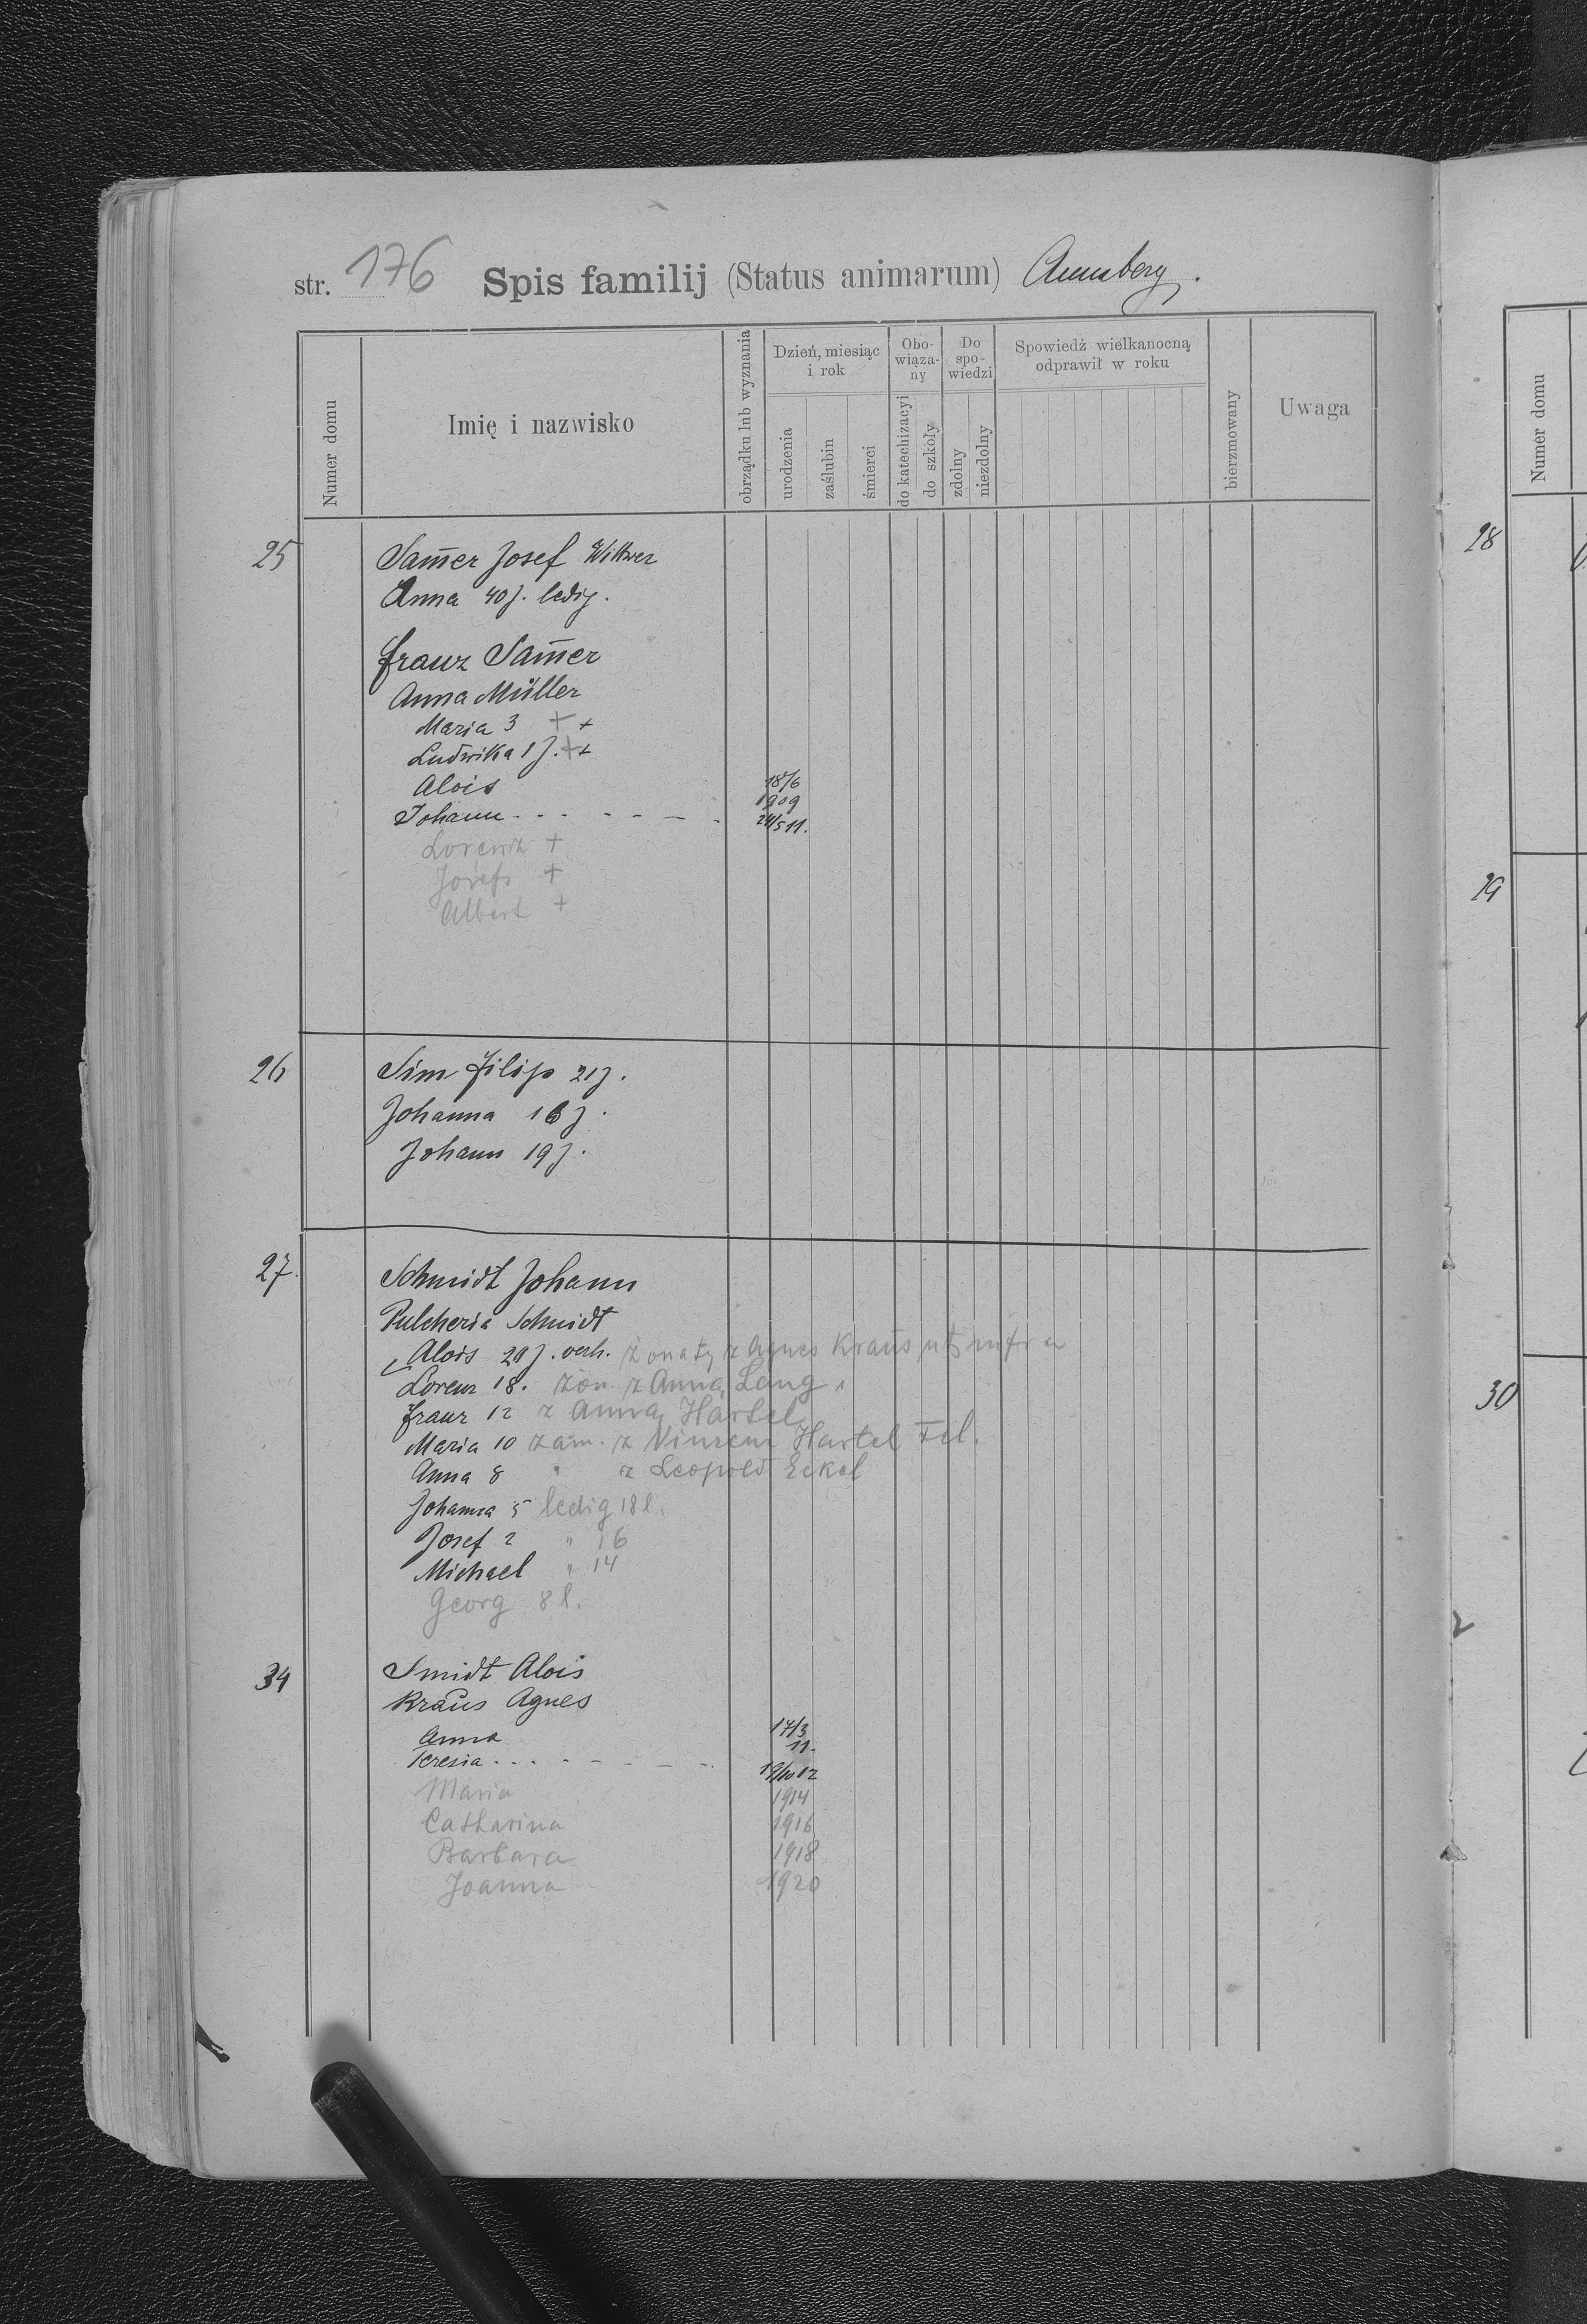 str. 176 Spis familij (Status animarum) Annaberg.
Numer domu
Imię i nazwisko
obrządku lub wyznania
Dzień, miesiąc i rok
urodzenia
zaślubin
śmierci
Obo-wiąza-ny
do katechizacyi
do szkoły
Do spo-wiedzi
zdolny
niezdolny
Spowiedź wielkanocną odprawił w roku
bierzmowany
Uwaga
25 Sam̄er Josef Wittwer
Anna 40 J. ledig.
Franz Sam̄er
Anna Müller
Maria 3 + +
Ludwika 1 J. + +
Alois 18/6 1909
Johann - - - - - - - 24/5 11.
Lorenz +
Josef +
Albert +
26 Sim Filip 21 J.
Johanna 16 J.
Johann 19 J.
27. Schmidt Johann
Pulcheria Schmidt
Alois 20 J. verh. żonaty z Agnes Kraus ut infra
Lorenz 18. żon. z Anną Lang
Franz 12 z Anną Hartel
Maria 10 zam. z Hartel Fel.
Anna 8 " z Leopold Eckel
Johanna 5 ledig 18 l.
Josef 2 " 16
Michael " 14
Georg 8 l.
34 Smidt Alois
Kraus Agnes
Anna 17/3 11.
Teresia - - - - - - - 19/10 12
Maria 1914
Catharina 1916
Barbara 1918
Joanna 1920
Numer domu
28
29
30